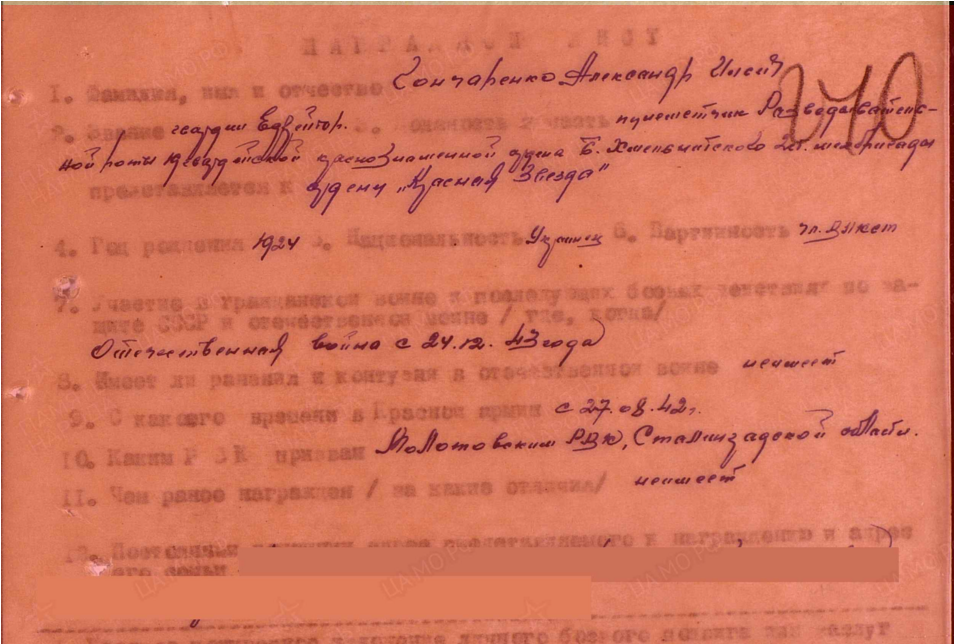 НАГРАДНОЙ ЛИСТ
1. Фамилия, имя и отчество Гончаренко Александр
240
2. Звание гвардии Ефрейтор. 3. Должность, часть пулеметчик Разведыватель-
ной роты гвардейской краснознаменной ордена Б. Хмельницкого
представляется к ордену „Красная Звезда"
4. Год рождения 1924 5. Национальность Украинец 6. Партийность чл. ВЛКСМ
7. Участие в гражданской войне и последующих боевых действиях по за-
щите СССР и отечественной войне / где, когда/
Отечественная война с 24.12.43 года
8. Имеет ли ранения и контузии в отечественной войне неимеет
9. С какого времени в Красной армии с 27.08.42г.
10. Каким РВК призван Молотовским РВК, Сталинградской области.
11. Чем ранее награжден / за какие отличия/ неимеет
12. Постоянный домашний адрес представляемого к награждению и адрес
его семьи